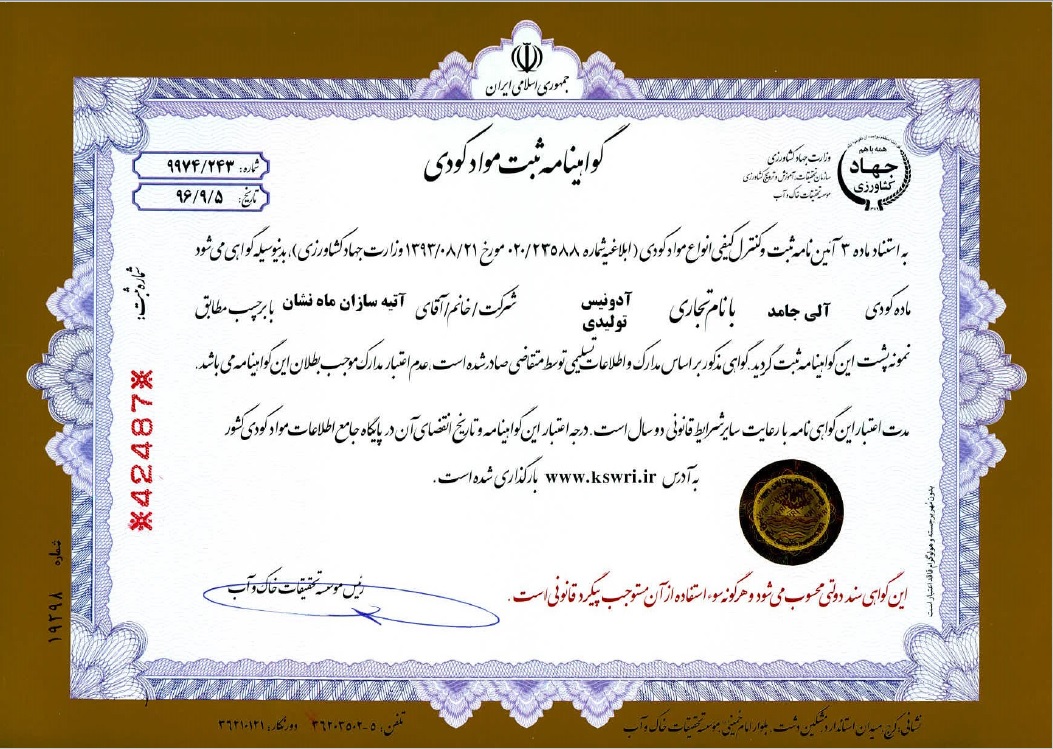 جمهوری اسلامی ایران
همه با هم
جهاد
کشاورزی
وزارت جهاد کشاورزی
سازمان تحقیقات، آموزش و ترویج کشاورزی
موسسه تحقیقات خاک و آب
گواهینامه ثبت مواد کودی
شماره: ۹۹۷۴/۲۴۳
تاریخ: ۹۶/۹/۵
به استناد ماده ۳ آئین نامه ثبت و کنترل کیفی انواع مواد کودی ( ابلاغیه شماره ۰۲۰/۲۳۵۸۸ مورخ ۱۳۹۳/۰۸/۲۱ وزارت جهاد کشاورزی )، بدینوسیله گواهی می شود
ماده کودی آلی جامد با نام تجاری آدونیس تولیدی شرکت / خانم / آقای آتیه سازان ماه نشان با برچسب مطابق
نمونه پشت این گواهینامه ثبت گردید. گواهی مذکور بر اساس مدارک و اطلاعات تسلیمی توسط متقاضی صادر شده است، عدم اعتبار مدارک موجب بطلان این گواهینامه می باشد.
مدت اعتبار این گواهی نامه با رعایت سایر شرایط قانونی دو سال است. درجه اعتبار این گواهینامه و تاریخ انقضای آن در پایگاه جامع اطلاعات مواد کودی کشور
به آدرس www.kswri.ir بارگذاری شده است.
رئیس موسسه تحقیقات خاک و آب
این گواهی سند دولتی محسوب می شود و هرگونه سوء استفاده از آن مستوجب پیگرد قانونی است.
شماره ثبت:
※42487※
بدون مُهر برجسته و هولوگرام فاقد اعتبار است
شماره ۱۹۲۹۸
نشانی: کرج، میدان استاندارد، مشکین دشت، بلوار امام خمینی، موسسه تحقیقات خاک و آب
تلفن: ۵-۳۶۲۰۳۵۰۲ دورنگار: ۳۶۲۱۰۱۲۱